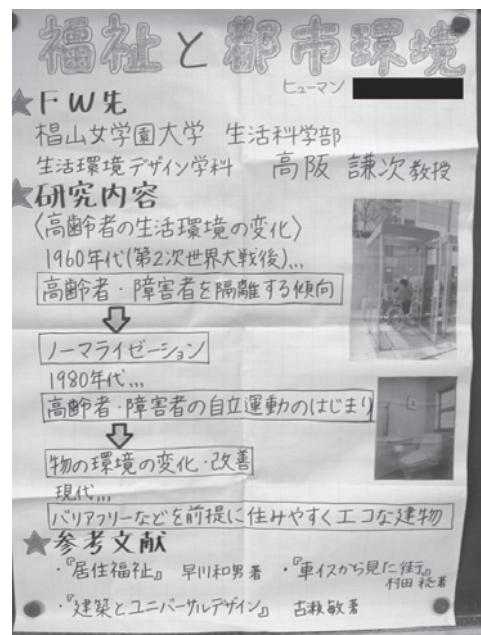 福祉と都市環境
ヒューマン
★FW先
椙山女学園大学 生活科学部
生活環境デザイン学科 高阪 謙次教授
★研究内容
〈高齢者の生活環境の変化〉
1960年代(第2次世界大戦後)...
高齢者・障害者を隔離する傾向
ノーマライゼーション
1980年代...
高齢者・障害者の自立運動のはじまり
物の環境の変化・改善
現代...
バリアフリーなどを前提に住みやすくエコな建物
★参考文献
・『居住福祉』 早川和男著 ・『車イスから見た街』
村田 稔著
・『建築とユニバーサルデザイン』 古瀬敏著